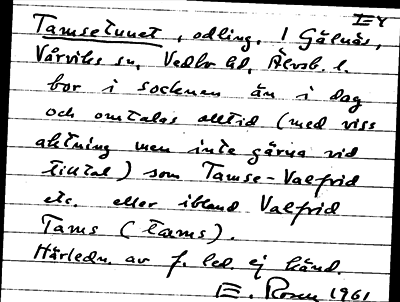 IEY
Tamsetunet, odling, i Gälnäs,
Vårviks sn, Vedbo hd, Älvsb. l.
bor i socknen än i dag
och omtalas alltid (med viss
aktning men inte gärna vid
tilltal) som Tamse-Valfrid
etc. eller ibland Valfrid
Tams (tams).
Härledn. av f. led. ej känd.
E. Rosen 1961